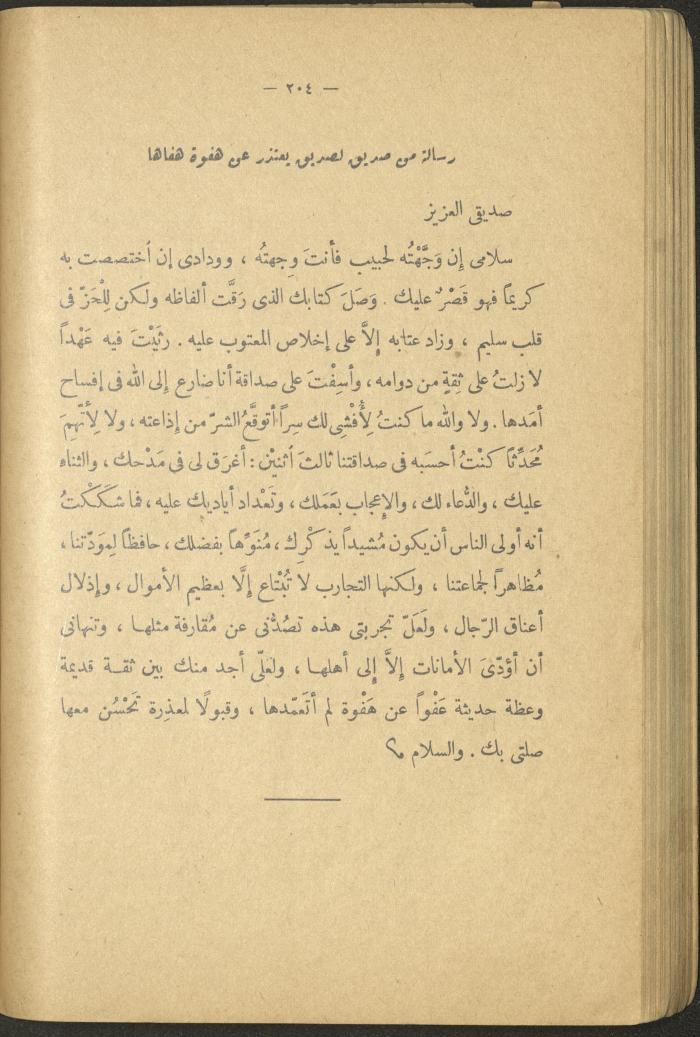 — ٢٠٤ —
رسالة من صديق لصديق يعتذر عن هفوة هفاها
صديقى العزيز
سلامى إن وَجَّهْتُه لحبيب فأنتَ وِجهتُه ، وودادى إن اُختصصت به
كريمًا فهو قَصْرٌ عليك . وَصَلَ كتابك الذى رَقَّت ألفاظه ولكن لِلْحَزّ فى
قلب سليم ، وزاد عتابه إلاَّ على إخلاص المعتوب عليه . رثَيْتَ فيه عَهْداً
لا زلتُ على ثِقةٍ من دوامه ، وأسِفْتَ على صداقة أنا ضارع إلى الله فى إفساح
أمَدها . ولا والله ما كنتُ لِأُفْشِىَ لك سِراً أتوقَّعُ الشرّ من إذاعته ، ولا لِأتَّهِمَ
مُحَدِّثًا كنْتُ أحسَبه فى صداقتنا ثالثَ اُثنيْن : أغرَق لى فى مَدْحك ، والثناء
عليك ، والدُّعاء لك ، والإعجاب بعَمَلك ، وتَعْداد أياديك عليه ، فما شكَكْتُ
أنه أولى الناس أن يكون مُشيداً بذكْرِك ، مُنَوِّهاً بفضلك ، حافظاً لِمودّتنا ،
مُظاهراً لجماعتنا ، ولكنها التجارب لا تُبْتاع إلَّا بعظيم الأموال ، وإذلال
أعناق الرّجال ، ولَعَلّ تجربتى هذه تصُدُّنى عن مُقارفة مثلها ، وتنهانى
أن أؤدّىَ الأمانات إلاَّ إلى أهلها ، ولعلّى أجد منك بين ثقة قديمة
وعظة حديثة عَفْواً عن هَفْوة لم أتَعمّدها ، وقبولًا لمعذِرة تَحْسُن معها
صلتى بك . والسلام